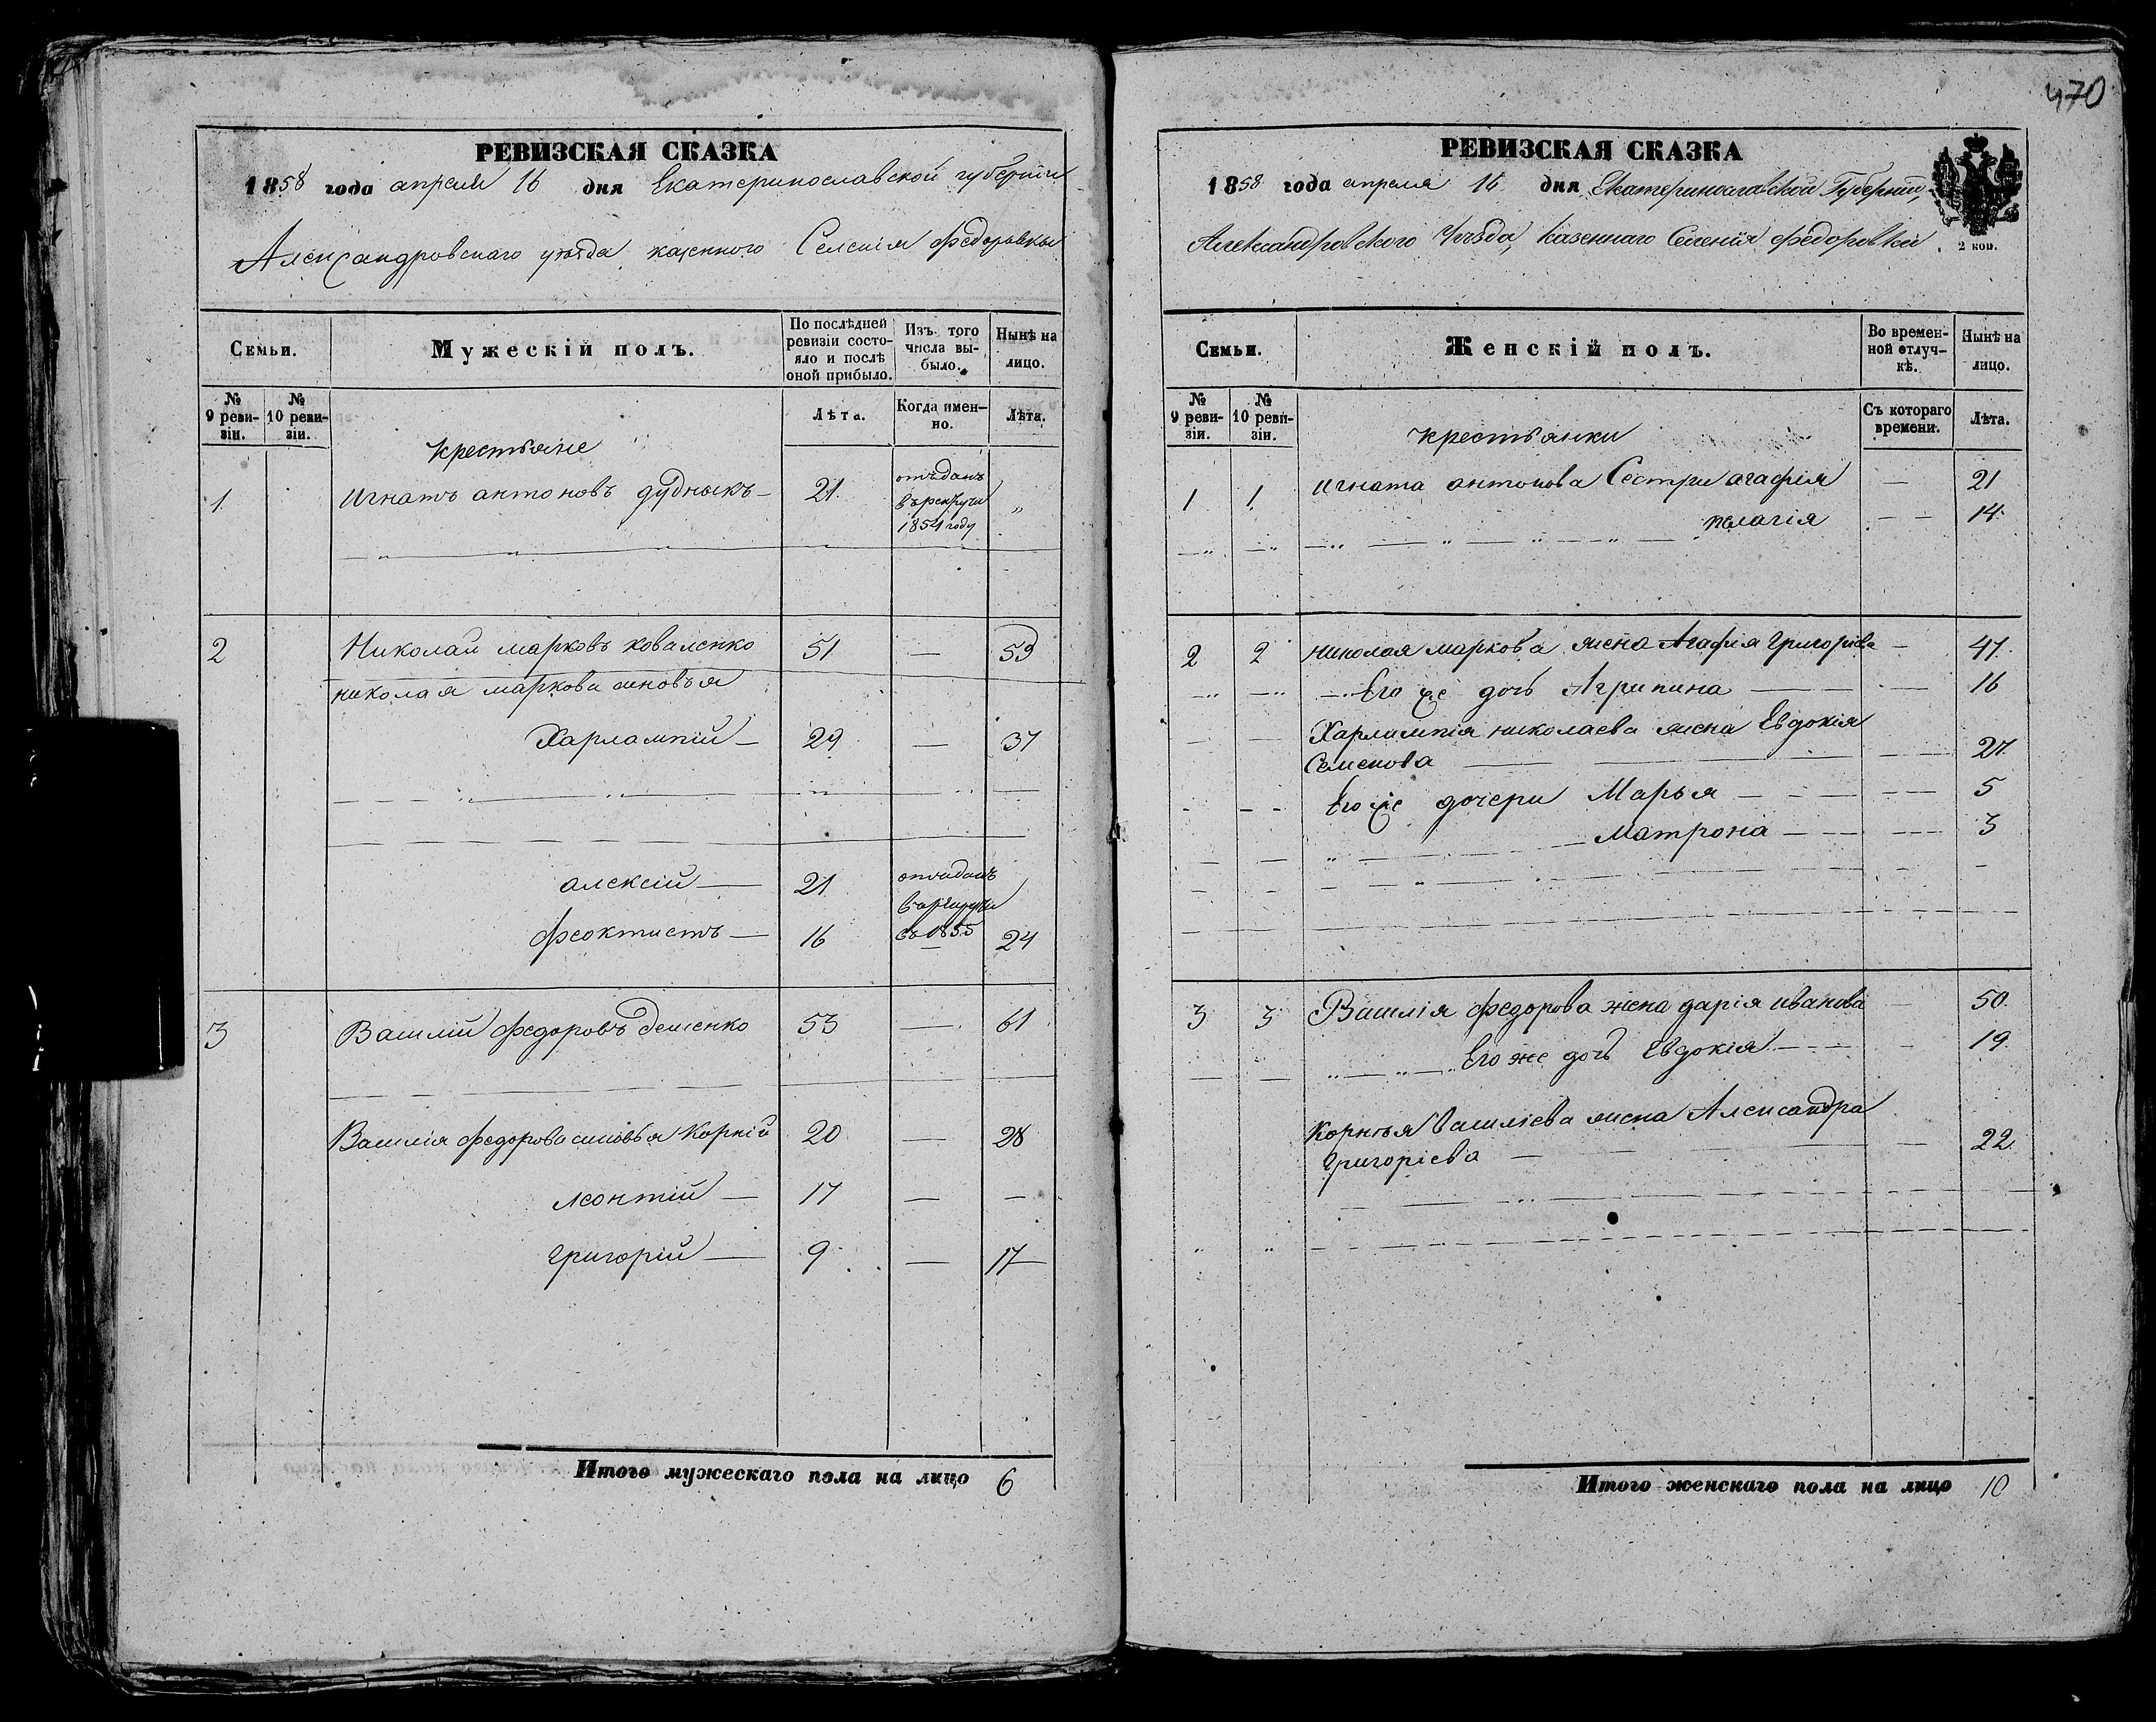 470
РЕВИЗСКАЯ СКАЗКА
1858 года апреля 16 дня Екатеринославской губернiи
Александровскаго уѣзда казенного Селенiя Федоровки
Семьи.
Мужескiй полъ.
По послѣдней ревизiи состояло и послѣ оной прибыло.
Изъ того числа выбыло.
Нынѣ на лицо.
№ 9 ревизiи.
№ 10 ревизiи.
Лѣта.
Когда именно.
Лѣта.
крестьяне
1 Игнатъ антоновъ дудныкъ — 21 отъданъ въ рекруты 1854 году „
2 Николай марковъ коваленко 51 — 59
николая маркова сновья
Харлампiй — 29 — 37
алексiй — 21 отъданъ въ рекруты съ 1855
Феоктистъ — 16 — 24
3 Василiй Федоровъ Деменко 53 — 61
Василiя Федорова сыновья Корнiй 20 — 28
леонтiй — 17 — —
григорiй — 9 — 17
Итого мужескаго пола на лицо 6
РЕВИЗСКАЯ СКАЗКА
1858 года апреля 16 дня Екатеринославской Губернiи,
Александровского Уѣзда, Казеннаго Селенiя Федоровки
2 коп.
Семьи.
Женскiй полъ.
Во временной отлучкѣ.
Нынѣ на лицо.
№ 9 ревизiи.
№ 10 ревизiи.
Съ котораго времени.
Лѣта.
крестьянки
1 1 Игната антонова Сестры агафiя — 21
пелагiя — — 14
2 2 николая маркова жена Агафiя Григорiева — 47
Его же дочь Агрипина — — 16
Харлампiя николаева жена Евдокiя
Семенова — 27
Его же дочери Марья — — 5
Матрона — — 3
3 3 Василiя Федорова жена дарiя иванова — 50
Его же дочь Евдокiя — — 19
Корнѣя Василiева жена Александра
Григорiева — — 22
Итого женскаго пола на лицо 10